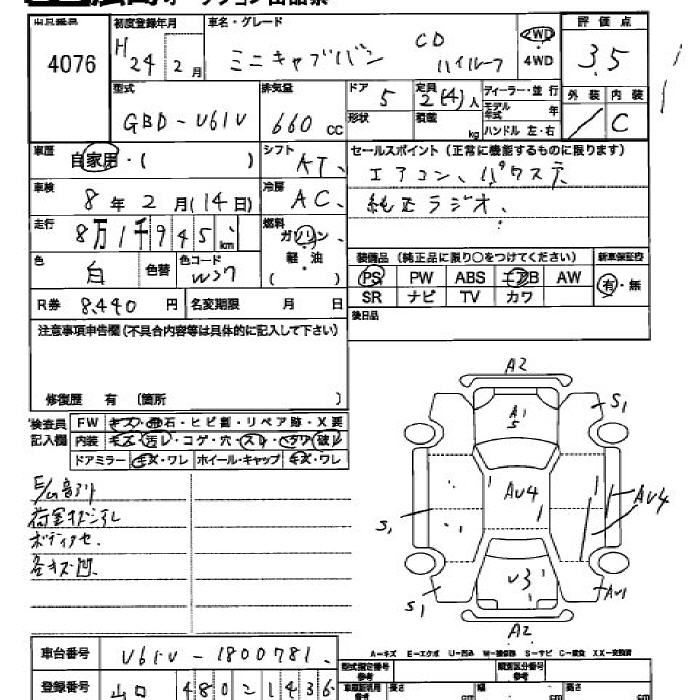 出品番号 初度登録年月 車名・グレード 2WD 4WD 評価点
4076 H 24 2月 ミニキャブバン CD ハイルーフ 3.5
型式 GBD-U61V 排気量 660 CC ドア 5 定員 2(4)人 ディーラー・並行 外装 内装
形状 積載 kg モデル年式 年 ハンドル 左・右 C
車歴 自家用・( ) シフト AT、 セールスポイント(正常に機能するものに限ります)
車検 8年2月(14日) 冷房 AC、 エアコン、パワステ
純正ラジオ、
走行 8万1千945km 燃料 ガソリン、軽油 ( )
色 白 色替 色コード W37 装備品(純正品に限り○をつけてください) 新車保証書
PS PW ABS エアB AW 有・無
R券 8,440円 名変期限 月 日 SR ナビ TV カワ
注意事項申告欄(不具合内容等は具体的に記入して下さい) 後日品
修復歴 有 (箇所 )
検査員記入欄 FW キズ・飛石・ヒビ割・リペア跡・X要
内装 キズ・汚レ・コゲ・穴・スレ・ヘタリ・破レ
ドアミラー キズ・ワレ ホイール・キャップ キズ・ワレ
E/G音
荷室キズ
ボディ
各キズ凹
A2
A1
S
S1
AU4
AU4
S1
U3
S1
AU1
A2
A-キズ E-エクボ U-凹み W-補修跡 S-サビ C-腐食 XX-交換済
車台番号 U61V-1800781
登録番号 山口 480 2 1436
型式指定番号 参考 類別区分番号 参考
長さ cm 幅 cm 高さ cm